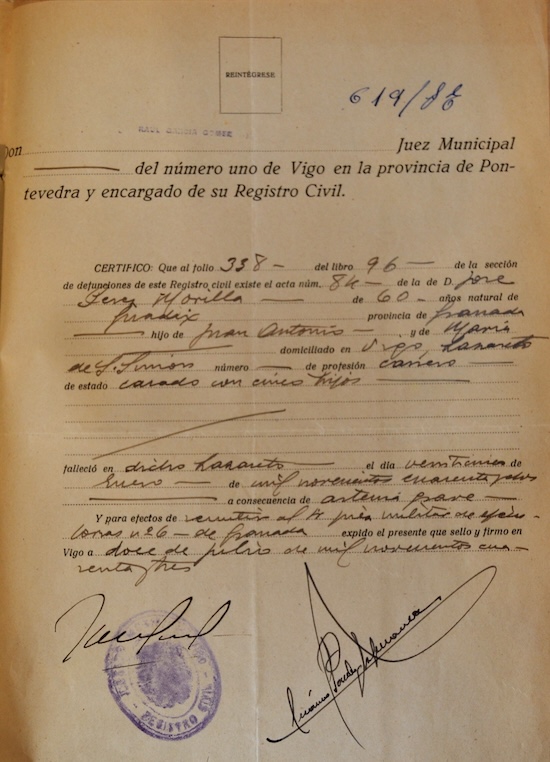 REINTÉGRESE
619/
RAUL GARCIA
Don Juez Municipal
del número uno de Vigo en la provincia de Pon-
tevedra y encargado de su Registro Civil.
CERTIFICO: Que al folio 338 del libro 96 de la sección
de defunciones de este Registro civil existe el acta núm. 84 de la de D. Jose
Morilla de 60 años natural de
Guadix provincia de Granada
hijo de Juan Antonio y de Maria
domiciliado en Vigo, Lazareto
de S. Simon número de profesión
de estado casado con cinco hijos
falleció en dicho Lazareto el día veinticinco de
Enero de mil novecientos cuarenta y dos
a consecuencia de grave
Y para efectos de remitir al Sr militar de
nº 6 de Granada expido el presente que sello y firmo en
Vigo a doce de de mil novecientos cua-
renta y tres
REGISTRO